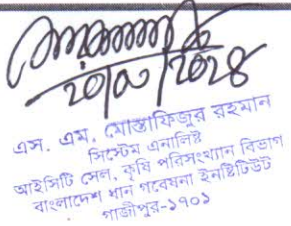 এস. এম. মোস্তাফিজুর রহমান
সিস্টেম এনালিষ্ট
আইসিটি সেল, কৃষি পরিসংখ্যান বিভাগ
বাংলাদেশ ধান গবেষনা ইনষ্টিটিউট
গাজীপুর-১৭০১